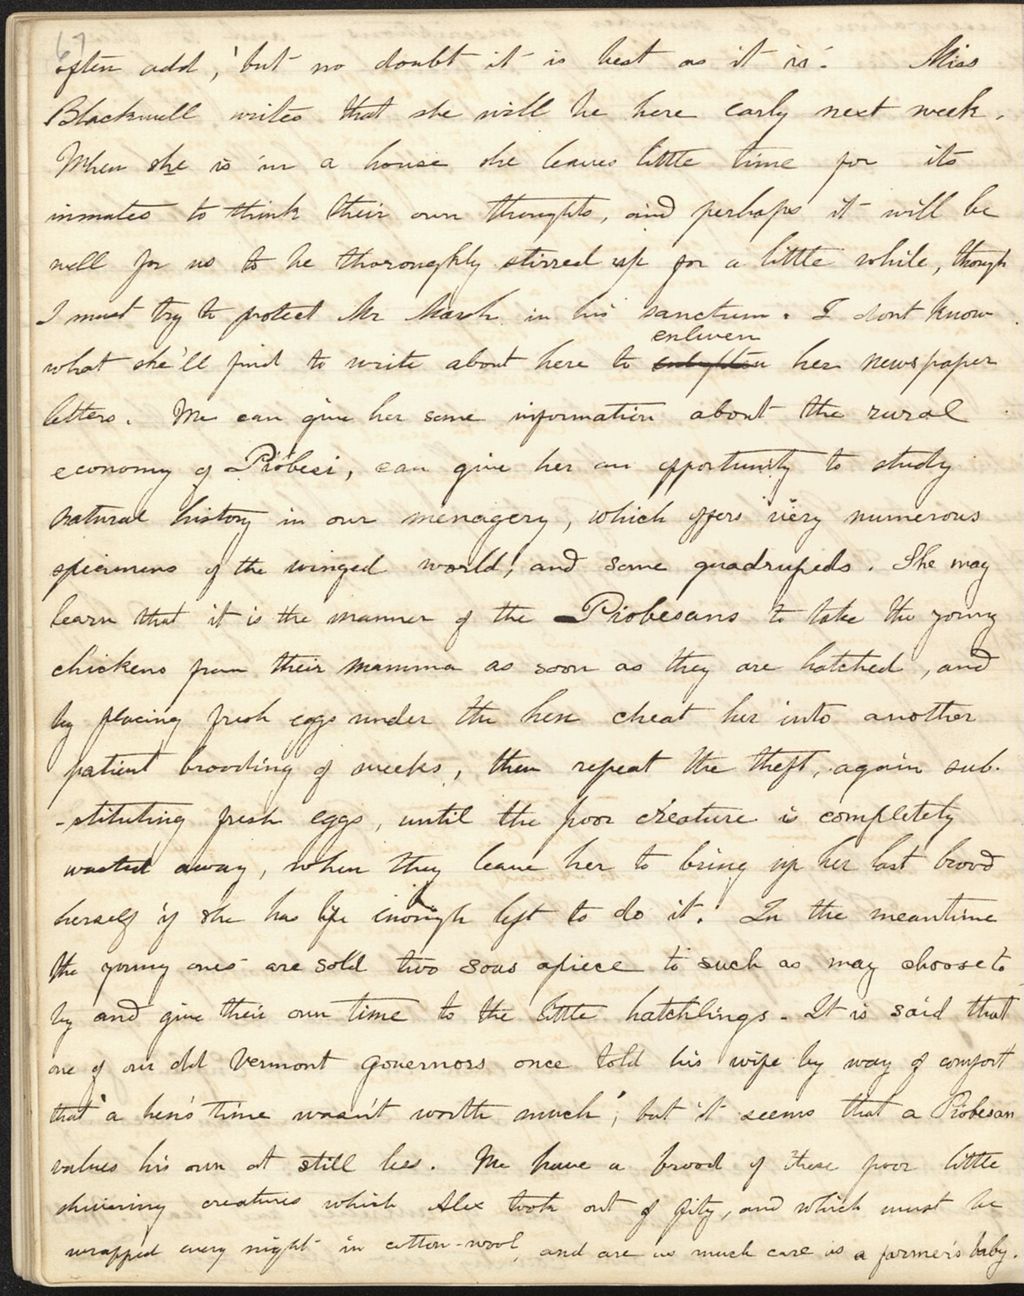 67
often add, 'but no doubt it is best as it is'. Miss
Blackwell writes that she will be here early next week.
When she is in a house she leaves little time for its
inmates to think their own thoughts, and perhaps it will be
well for us to be thoroughly stirred up for a little while, though
I must try to protect Mr Marsh in his sanctum. I dont know
enliven
what she'll find to write about here to her newspaper
letters. We can give her some information about the rural
economy of Piòbesi, can give her an opportunity to study
natural history in our menagery, which offers very numerous
specimens of the winged world, and some quadrupeds. She may
learn that it is the manner of the Piobesans to take the young
chickens from their mamma as soon as they are hatched, and
by placing fresh eggs under the hen cheat her into another
patient brooding of weeks, then repeat the theft, again sub-
-stituting fresh eggs, until the poor creature is completely
wasted away, when they leave her to bring up her last brood
herself if she has life enough left to do it. In the meantime
the young ones are sold two sous apiece to such as may choose to
by and give their own time to the little hatchlings. It is said that
one of our old Vermont governors once told his wife by way of comfort
that 'a hen's time wasn't worth much', but it seems that a Piobesan
values his own at still less. We have a brood of these poor little
shivering creatures which Alex took out of pity, and which must be
wrapped every night in cotton-wool, and are as much care as a farmer's baby.